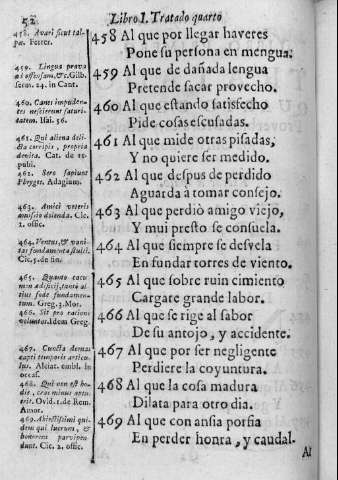 52 Libro I. Tratado quarto
458 Al que por llegar haveres
Pone su persona en mengua.
459 Al que de dañada lengua
Pretende sacar provecho.
460 Al que estando satisfecho
Pide cosas escusadas.
461 Al que mide otras pisadas,
Y no quiere ser medido.
462 Al que despus de perdido
Aguarda à tomar consejo.
463 Al que perdiò amigo viejo,
Y mui presto se consuela.
464 Al que siempre se desvela
En fundar torres de viento.
465 Al que sobre ruin cimiento
Cargare grande labor.
466 Al que se rige al sabor
De su antojo, y accidente.
467 Al que por ser negligente
Perdiere la coyuntura.
468 Al que la cosa madura
Dilata para otro dia.
469 Al que con ansia porfia
En perder honra, y caudal.
Al
458. Avari sicut talpæ. Ferrer.
459. Lingua prava
est officium, & c. Gilb.
serm. 24. in Cant.
460. Canes impudentes
nescierunt saturitatem.
Isai. 56.
461. Qui aliena delicta
corripis, propria
devita. Cat. de
republi.
462. Sero sapiunt
Phryges. Adagium.
463. Amici veteris
dolenda. Cic.
2. offic.
464. Ventus, & vanitas
fundamenta stulti.
Cic. 5. de fin.
465. Quanto
tantò
fundamentum.
Greg. 3. Mor.
466. Sit pro ratione
voluntas. Idem Greg.
467. Cuncta
capti temporis articulus.
Alciat. embl. in
occas.
468. Qui non est hodie,
cras minus aptus
erit. Ovid. 1. de Rem.
Amor.
469. quidem
qui lucrum, &
honorem parvipendunt.
Cic. 2. offic.